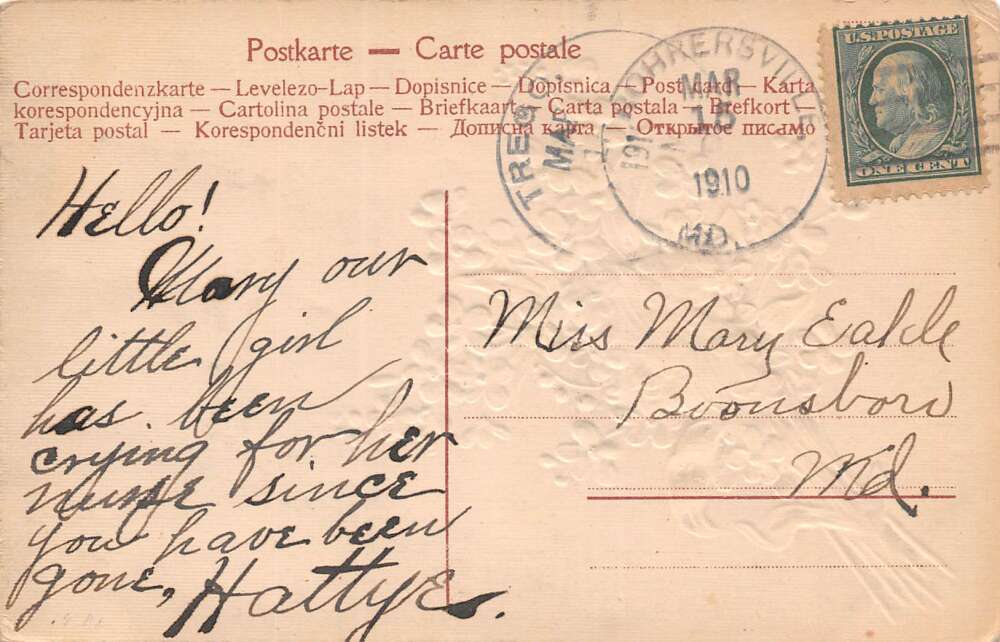 Postkarte — Carte postale
Correspondenzkarte — Levelezo-Lap — Dopisnice — Dopisnica — Post card — Karta
korespondencyjna — Cartolina postale — Briefkaart — Carta postala — Brefkort —
Tarjeta postal — Korespondenčni listek — Дописна карта — Открытое письмо
TREGO,
MAR
1910
ROHRERSVILLE
MAR
15
1910
MD.
U.S. POSTAGE
ONE CENT
Hello!
Mary our
little girl
has been
crying for her
nurse since
you have been
gone, Hattye.
Miss Mary Eakle
Boonsboro
Md.